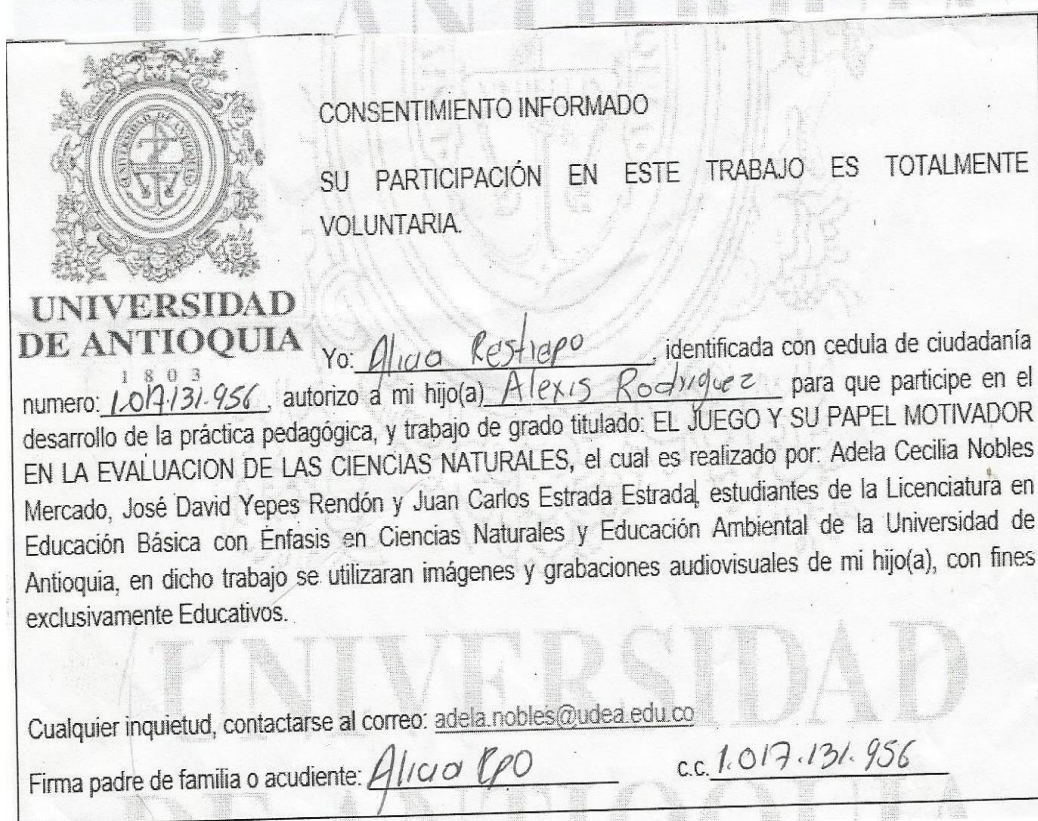 CONSENTIMIENTO INFORMADO
SU PARTICIPACIÓN EN ESTE TRABAJO ES TOTALMENTE
VOLUNTARIA.
UNIVERSIDAD
DE ANTIOQUIA
1803
Yo: Alicia Restrepo, identificada con cedula de ciudadanía
numero: 1.017.131.956, autorizo a mi hijo(a) Alexis Rodriguez para que participe en el
desarrollo de la práctica pedagógica, y trabajo de grado titulado: EL JUEGO Y SU PAPEL MOTIVADOR
EN LA EVALUACION DE LAS CIENCIAS NATURALES, el cual es realizado por: Adela Cecilia Nobles
Mercado, José David Yepes Rendón y Juan Carlos Estrada Estrada, estudiantes de la Licenciatura en
Educación Básica con Énfasis en Ciencias Naturales y Educación Ambiental de la Universidad de
Antioquia, en dicho trabajo se utilizaran imágenes y grabaciones audiovisuales de mi hijo(a), con fines
exclusivamente Educativos.
UNIVERSIDAD
Cualquier inquietud, contactarse al correo: adela.nobles@udea.edu.co
Firma padre de familia o acudiente: Alicia Rpo c.c. 1.017.131.956
DE ANTIOQUIA